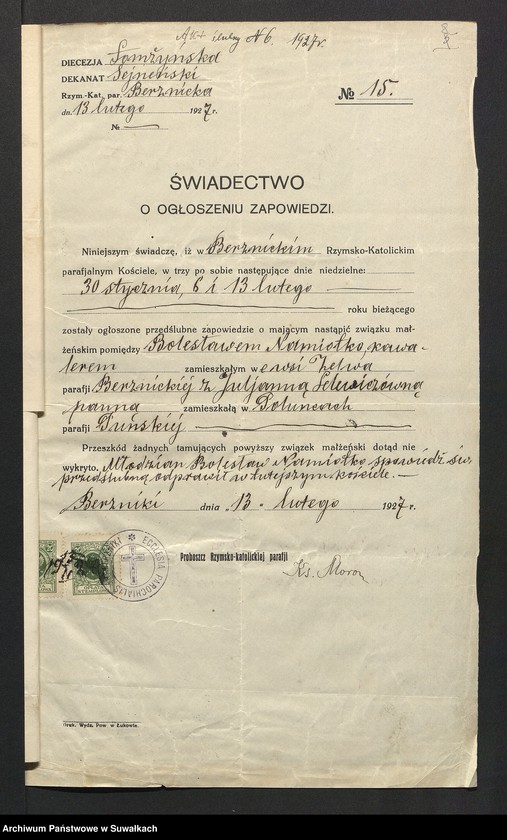 Akt ślubny N 6. 1927r.
DIECEZJA Łomżyńska
DEKANAT Sejneński
Rzym.-Kat. par. Berznicka
dn. 13 lutego 1927 r.
№
№ 15.
ŚWIADECTWO
O OGŁOSZENIU ZAPOWIEDZI.
Niniejszym świadczę, iż w Berznickim Rzymsko-Katolickim
parafjalnym Kościele, w trzy po sobie następujące dnie niedzielne:
30 stycznia, 6 i 13 lutego
roku bieżącego
zostały ogłoszone przedślubne zapowiedzie o mającym nastąpić związku mał-
żeńskim pomiędzy Bolesławem Namiotko, kawa-
lerem zamieszkałym w e wsi Zelwa
parafji Berznickiej z Juljanną Lelewiczówną
panną zamieszkałą w Połuncach
parafji Puńskiej
Przeszkód żadnych tamujących powyższy związek małżeński dotąd nie
wykryto. Młodzian Bolesław Namiotko spowiedź św.
przedślubną odprawił w tutejszym kościele.
Berzniki dnia 13 lutego 1927 r.
ECCLESIA PAROCHIALIS
Proboszcz Rzymsko-katolickiej parafji
Ks. Moroz
Druk. Wyda. Pow. w Łukowie.
Archiwum Państwowe w Suwałkach